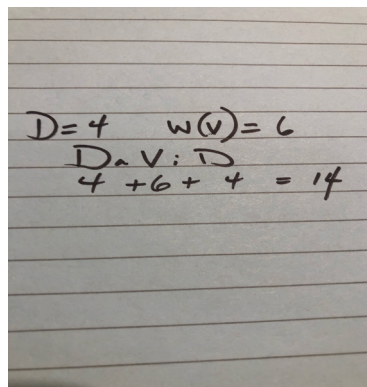 D=4 W(V)= 6
DaViD
4 +6+ 4 = 14